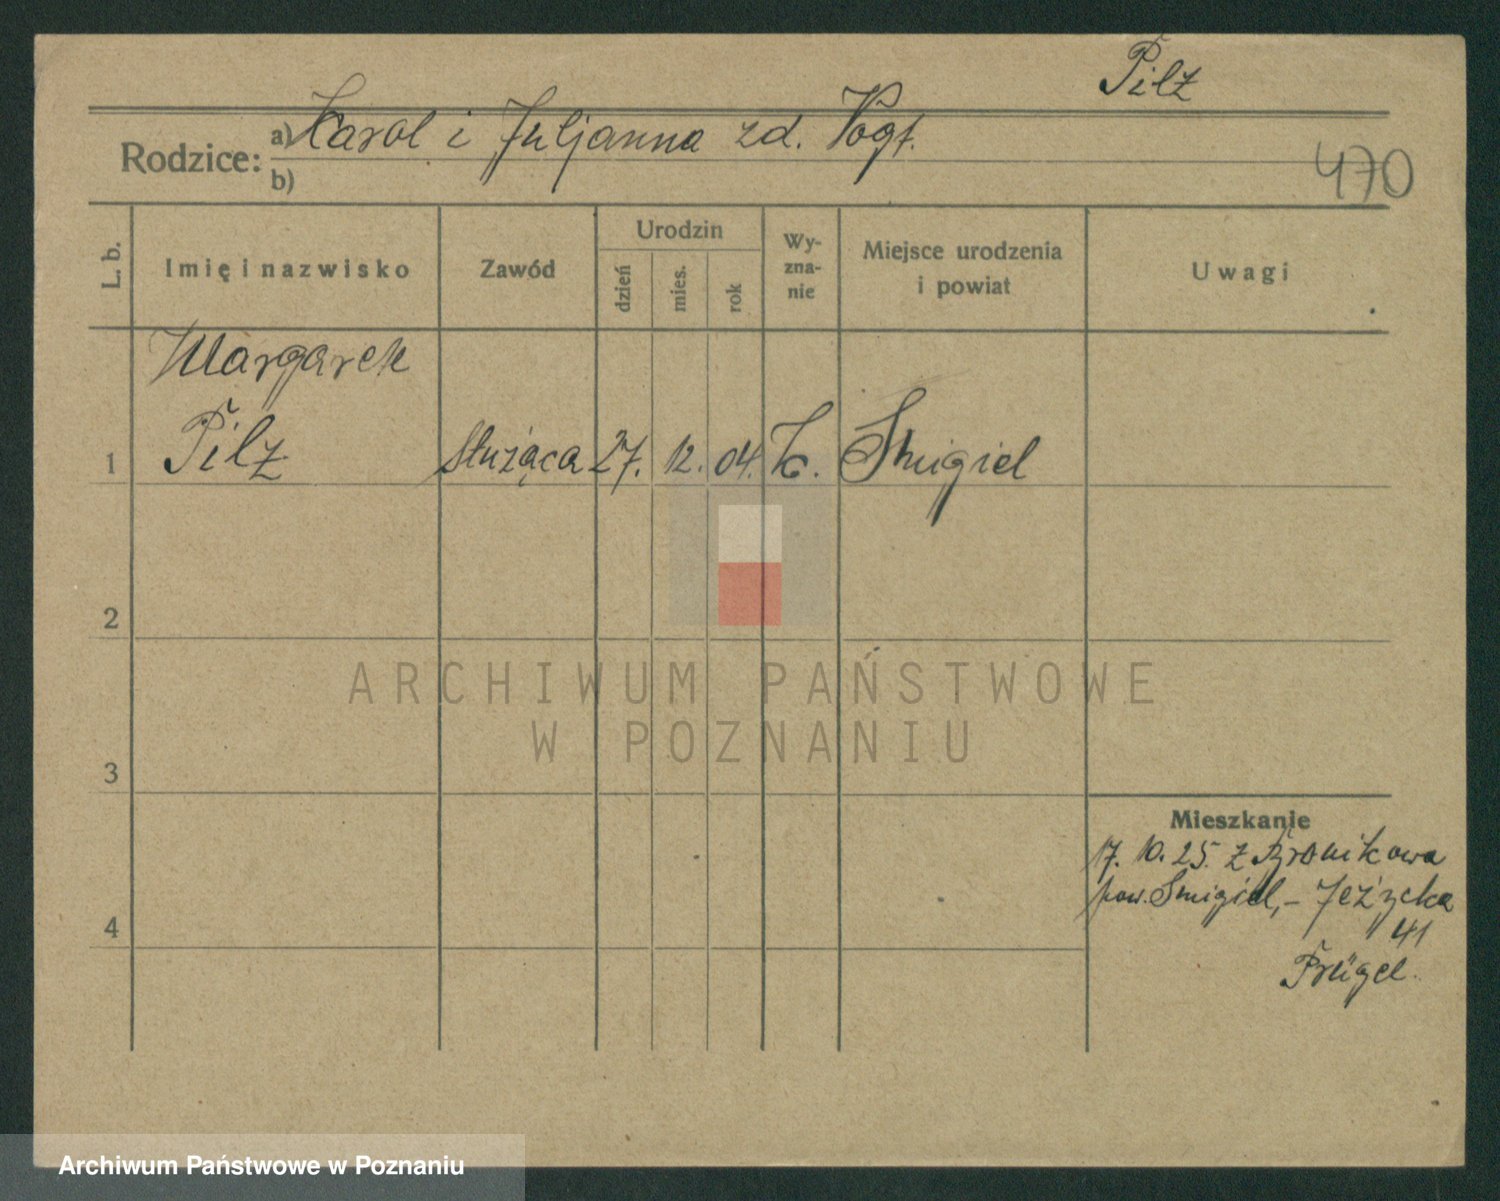 Pilz
Rodzice: a) Karol i Juljanna zd. Vogt.
b)
470
L. b.
Imię i nazwisko
Zawód
Urodzin
dzień
mies.
rok
Wy-
zna-
nie
Miejsce urodzenia
i powiat
Uwagi
Margarete
1 Pilz służąca 27. 12. 04. Śmigiel
2
3
4
Mieszkanie
17. 10. 25. z Bronikowa
pow. Śmigiel, - Jeżycka
41
Prügel.
ARCHIWUM PAŃSTWOWE
W POZNANIU
Archiwum Państwowe w Poznaniu